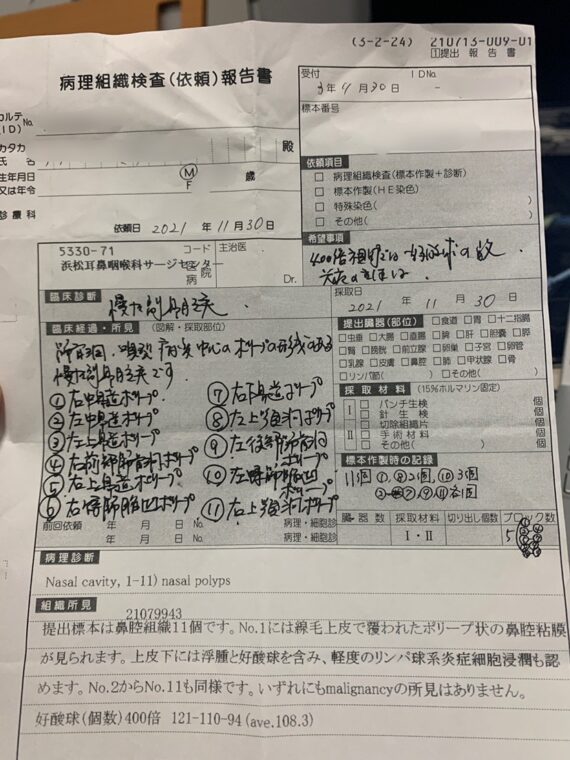 (3-2-24) 210713-009-01
①提出 報告書
病理組織検査(依頼)報告書
カルテ No.
(ID)
カタカ
氏名 殿
生年月日 M
又は年令 F 歳
診療科
依頼日 2021 年 11月 30日
受付 IDNo.
3年 11月 30日 -
標本番号
依頼項目
□ 病理組織検査(標本作製+診断)
□ 標本作製(HE染色)
□ 特殊染色(
□ その他(
希望事項
400倍視野での好酸球の数
5330-71 コード 主治医
浜松耳鼻咽喉科サージセンター
病院 Dr.
臨床診断
慢性副鼻腔炎
採取日
2021 年 11 月 30 日
臨床経過・所見 (図解・採取部位)
慢性副鼻腔炎です
①右中鼻道ポリープ
②左中鼻道ポリープ
③左上鼻道ポリープ
④右前篩骨洞ポリープ
⑤右上鼻道ポリープ
⑥右蝶篩陥凹ポリープ
⑦右下鼻道ポリープ
⑧右上顎洞ポリープ
⑨左後篩骨洞ポリープ
⑩左蝶篩陥凹ポリープ
⑪左上顎洞ポリープ
提出臓器(部位) □食道 □胃 □十二指腸
□虫垂 □大腸 □直腸 □肺 □肝 □胆嚢 □膵
□腎 □膀胱 □前立腺 □卵巣 □子宮 □卵管
□乳腺 □皮膚 □鼻腔 □肺 □甲状腺 □骨
□リンパ節( ) □その他( )
採取材料 (15%ホルマリン固定)
Ⅰ □ パンチ生検 個
□ 針生検 個
□ 切除組織片 個
Ⅱ □ 手術材料 個
□ その他( ) 個
標本作製時の記録
臓器数 採取材料 切り出し個数 ブロック数
Ⅰ・Ⅱ 5
前回依頼 年 月 日 No. 病理・細胞診
年 月 日 No. 病理・細胞診
病理診断
Nasal cavity, 1-11) nasal polyps
組織所見
21079943
提出標本は鼻腔組織11個です。No.1には線毛上皮で覆われたポリープ状の鼻腔粘膜
が見られます。上皮下には浮腫と好酸球を含み、軽度のリンパ球系炎症細胞浸潤も認
めます。No.2からNo.11も同様です。いずれにもmalignancyの所見はありません。
好酸球(個数)400倍 121-110-94(ave.108.3)